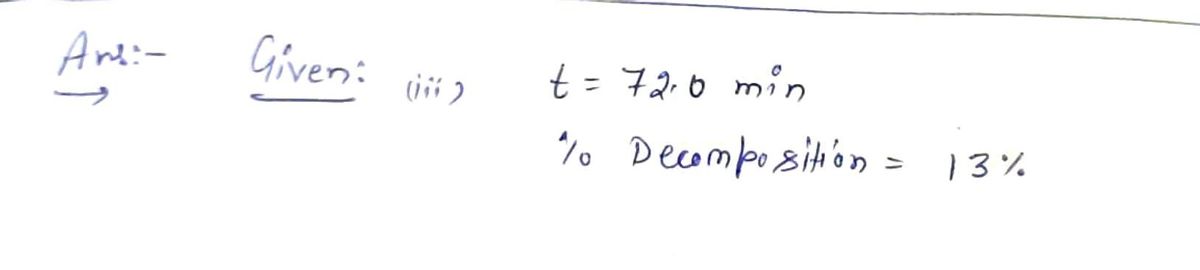 Ans:- Given: (iii) t = 72.0 min
% Decomposition = 13%